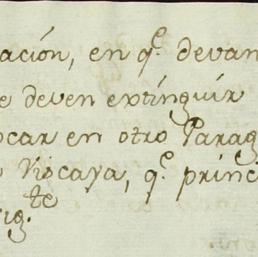 ación, en q.e devan
e deven extinguir
ocar en otro Parag
Viscaya, q.e princ
sig.te